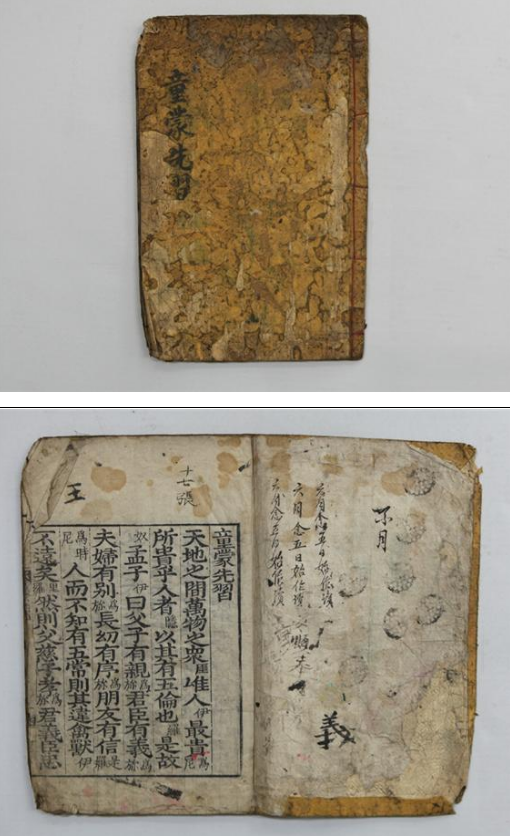 童蒙先習
不月
六月念五日始
義
十七張
王
童蒙先習
天地之間萬物之衆厓唯人伊最貴爲尼
所貴乎人者以其有五倫也羅是故
奴孟子伊曰父子有親爲旀君臣有義爲旀
夫婦有别爲旀長幼有序爲旀朋友有信是羅
爲時尼人而不知有五常則其違禽獸伊
不遠矣里羅然則父慈子孝爲旀君義臣忠